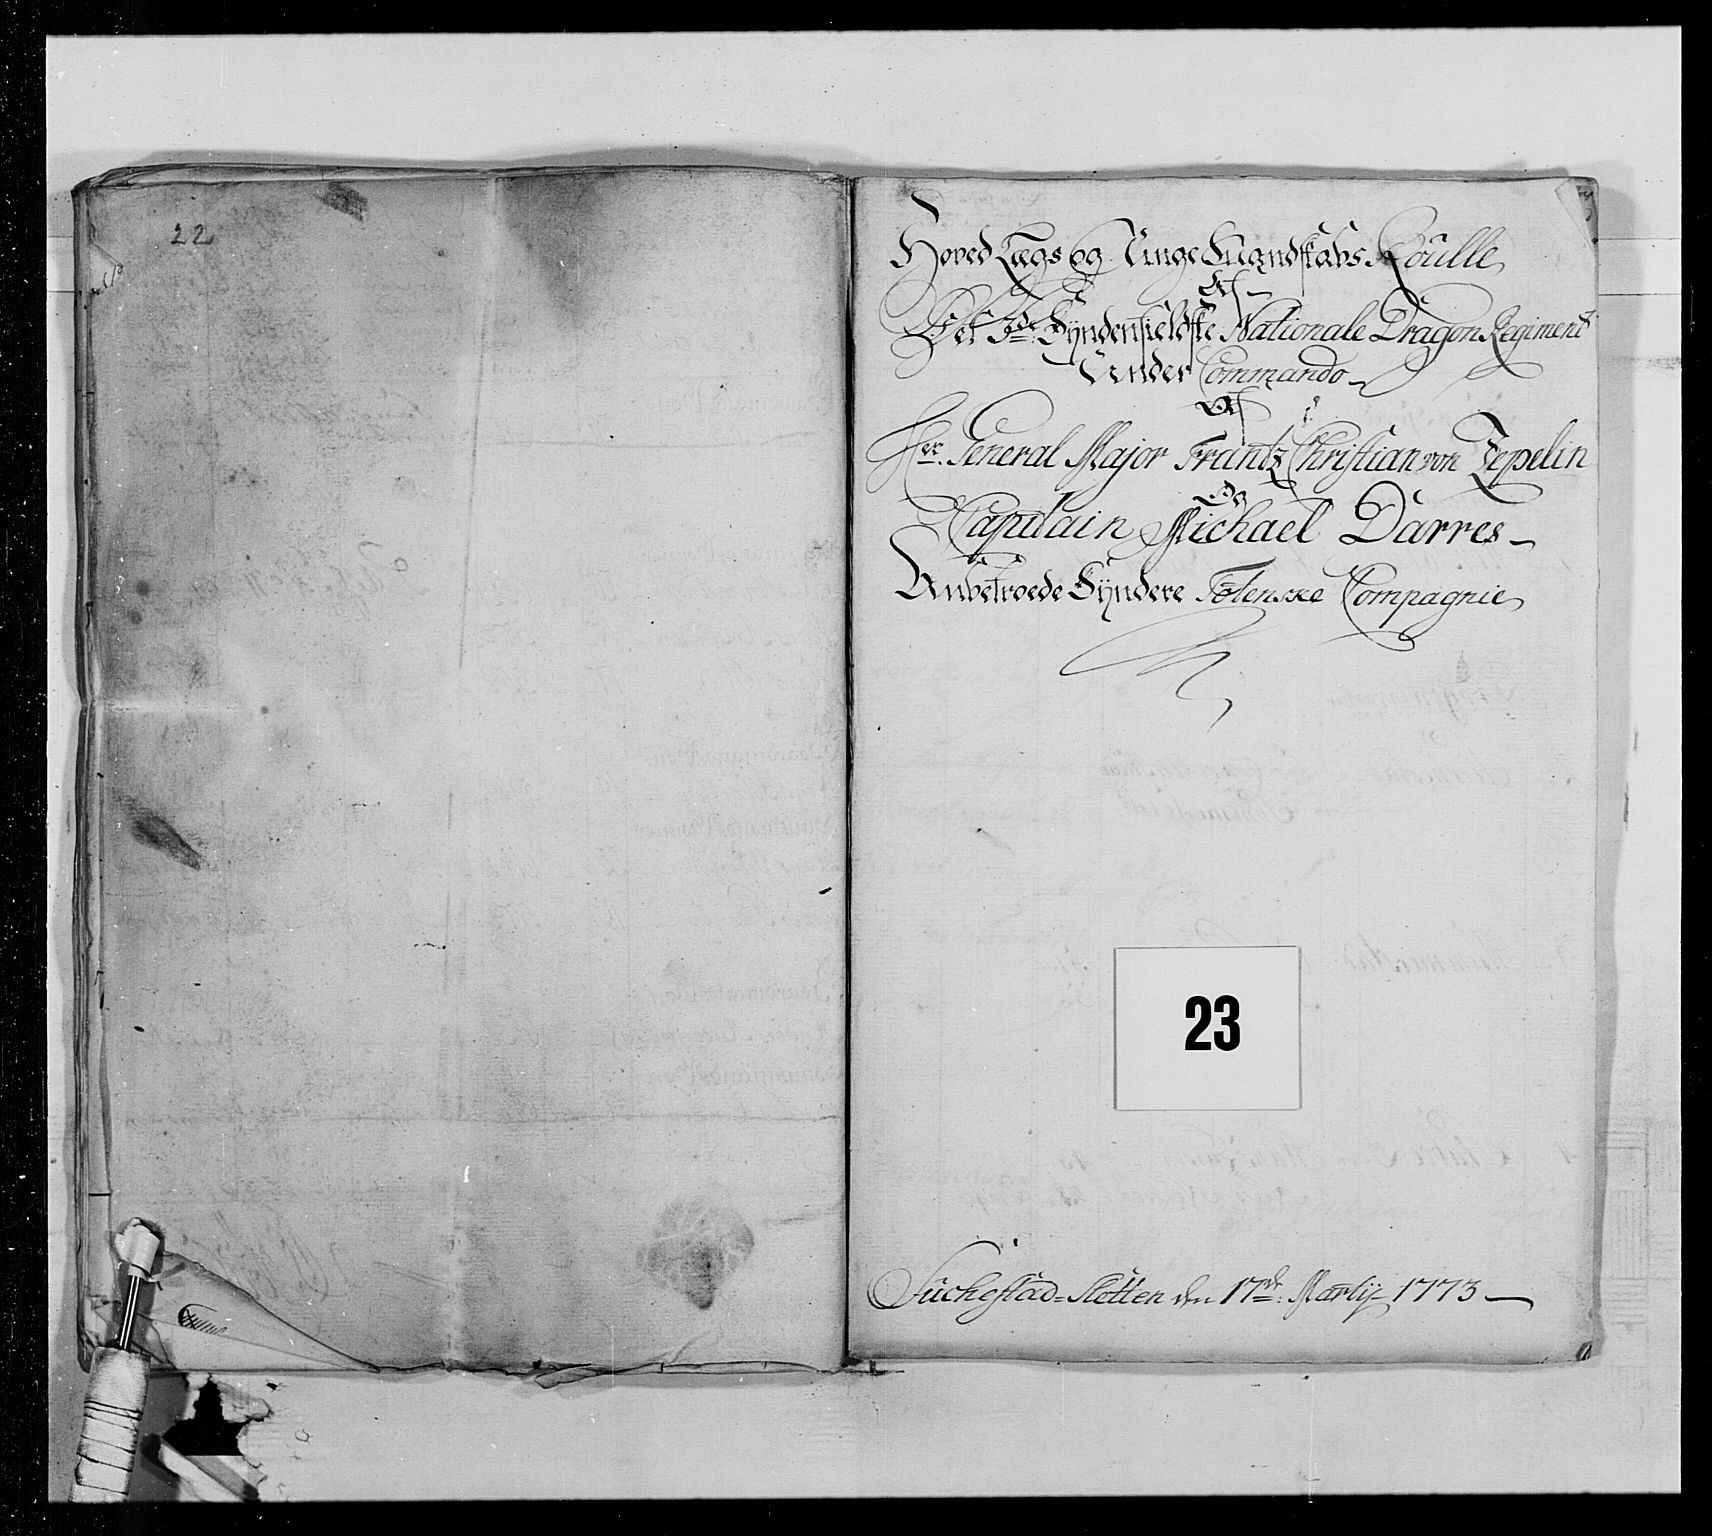 22
Hoved Lægs og Unge Mandskabs Roulle
Af
Det 3de Syndenfieldske Nationale Dragon Regiment
Under Commando
Af
Her. General Major Frantz Christian von Zepelin
Og
Capitain Michael Darres
Anbetroede Syndere Totenske Compagnie
23
Süchestad-Slotten den 17de Martij 1773